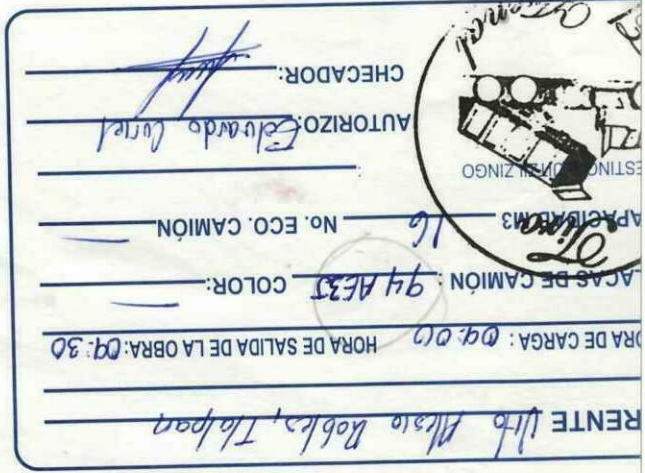 RENTE Vito Alesio Robles, Tlalpan
ORA DE CARGA: 09:00 HORA DE SALIDA DE LA OBRA: 09:30
LACAS DE CAMIÓN: 94 AE3J COLOR: —
APACIDAD M3 16 No. ECO. CAMIÓN —
ESTINO ZINGO
AUTORIZO: Eduardo Coriel
CHECADOR:
Tiro